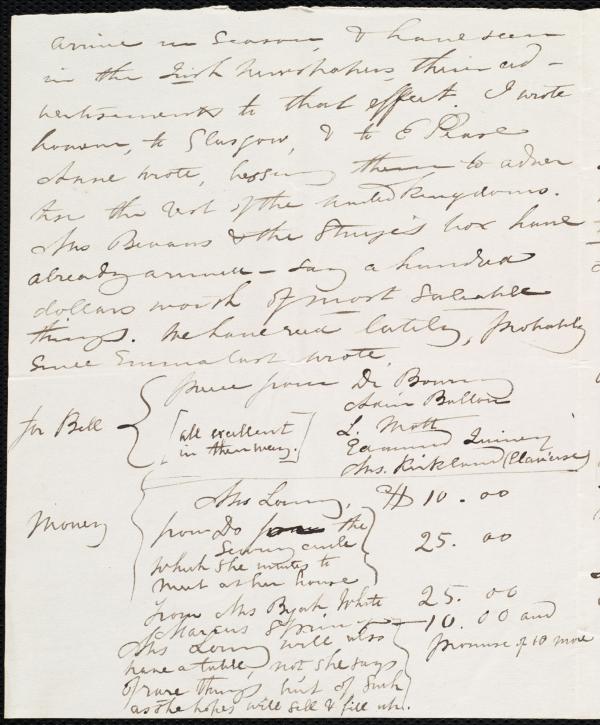 arrive in season, & have seen
in the Irish newspapers their ad-
vertisements to that effect. I wrote
however, to Glasgow, & to E Pease
Anne wrote, begging them to adver
tise the rest of the united kingdoms.
Mrs Bevans & the Sturge's box have
already arrived - say a hundred
dollars worth of most saleable
things. We have rec'd lately, probably
since Emma last wrote,
for Bell
piece from Dr. Bowring
Adin Ballou
[all excellent in their way.]
L. Mott
Edmund Quincy
Mrs. Kirkland (Clavers)
Money
Mrs Loring, $10.00
from Do the
Sewing circle 25.00
which she invites to
meet at her house
from Mrs White 25.00
Marcus Spring 10.00 and
promise of 10 more
Mrs Loring will also
have a table, not she says
of rare things but of such
as she hopes will sell & fill up.